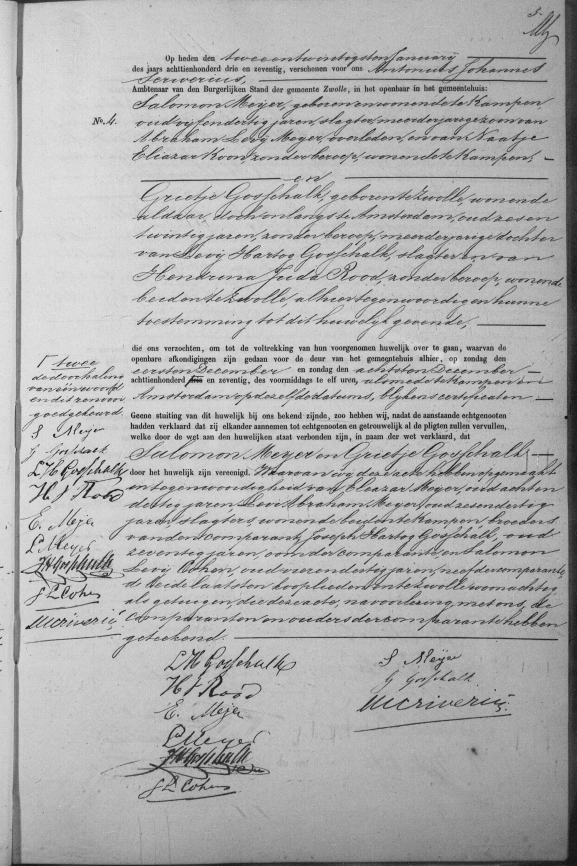 5.
Op heden den tweeentwintigsten Januarij
des jaars achttienhonderd drie en zeventig, verschenen voor ons Antonius Johannes
Scriverius,
Ambtenaar van den Burgerlijken Stand der gemeente Zwolle, in het openbaar in het gemeentehuis:
No. 4.
Salomon Meijer, geboren en wonende te Kampen,
oud vijfendertig jaren, slagter, meerderjarige zoon van
Abraham Levij Meijer, overleden, en van Naatje
Eliazar Koon, zonder beroep, wonende te Kampen,
en
Grietje Gosschalk, geboren te Zwolle, wonende
aldaar, doch onlangs te Amsterdam, oud zes en
twintig jaren, zonder beroep, meerderjarige dochter
van Levij Hartog Gosschalk, slagter en van
Hendrina Juda Rood, zonder beroep, wonende
beiden te Zwolle, alhier tegenwoordig en hunne
toestemming tot dit huwelijk gevende,
die ons verzochten, om tot de voltrekking van hun voorgenomen huwelijk over te gaan, waarvan de
openbare afkondigingen zijn gedaan voor de deur van het gemeentehuis alhier, op zondag den
eersten December en zondag den achtsten December
achttienhonderd en zeventig, des voormiddags te elf uren, alsmede te Kampen en
Amsterdam op dezelfde datums, blijkens certificaten
Geene stuiting van dit huwelijk bij ons bekend zijnde, zoo hebben wij, nadat de aanstaande echtgenooten
hadden verklaard dat zij elkander aannemen tot echtgenooten en getrouwelijk al de pligten zullen vervullen,
welke door de wet aan den huwelijken staat verbonden zijn, in naam der wet verklaard, dat
Salomon Meijer en Grietje Gosschalk
door het huwelijk zijn vereenigd. Waarvan wij deze acte hebben opgemaakt
in tegenwoordigheid van Eliazar Meijer, oud achten
dertig jaren, Levi Abraham Meijer, oud zesendertig
jaren, slagters, wonende beiden te Kampen, broeders
van den comparant, Joseph Hartog Gosschalk, oud
zeventig jaren, oom der comparante, en Salomon
Levij Cohen, oud vierendertig jaren, neef der comparante,
de beide laatsten kooplieden en te Zwolle woonachtig
als getuigen, die deze acte, na voorlezing met ons, de
Comparanten en ouders der comparante hebben
geteekend.
twee
de doorhaling
van één woord
en dit renvooi
goedgekeurd.
S Meijer
G Gosschalk
L H Gosschalk
H J Rood
E. Meijer
L Meijer
J H Gosschalk
S L Cohen
Scriverius
L H Gosschalk
H J Rood
E. Meijer
L Meijer
J H Gosschalk
S L Cohen
S Meijer
G Gosschalk
Scriverius